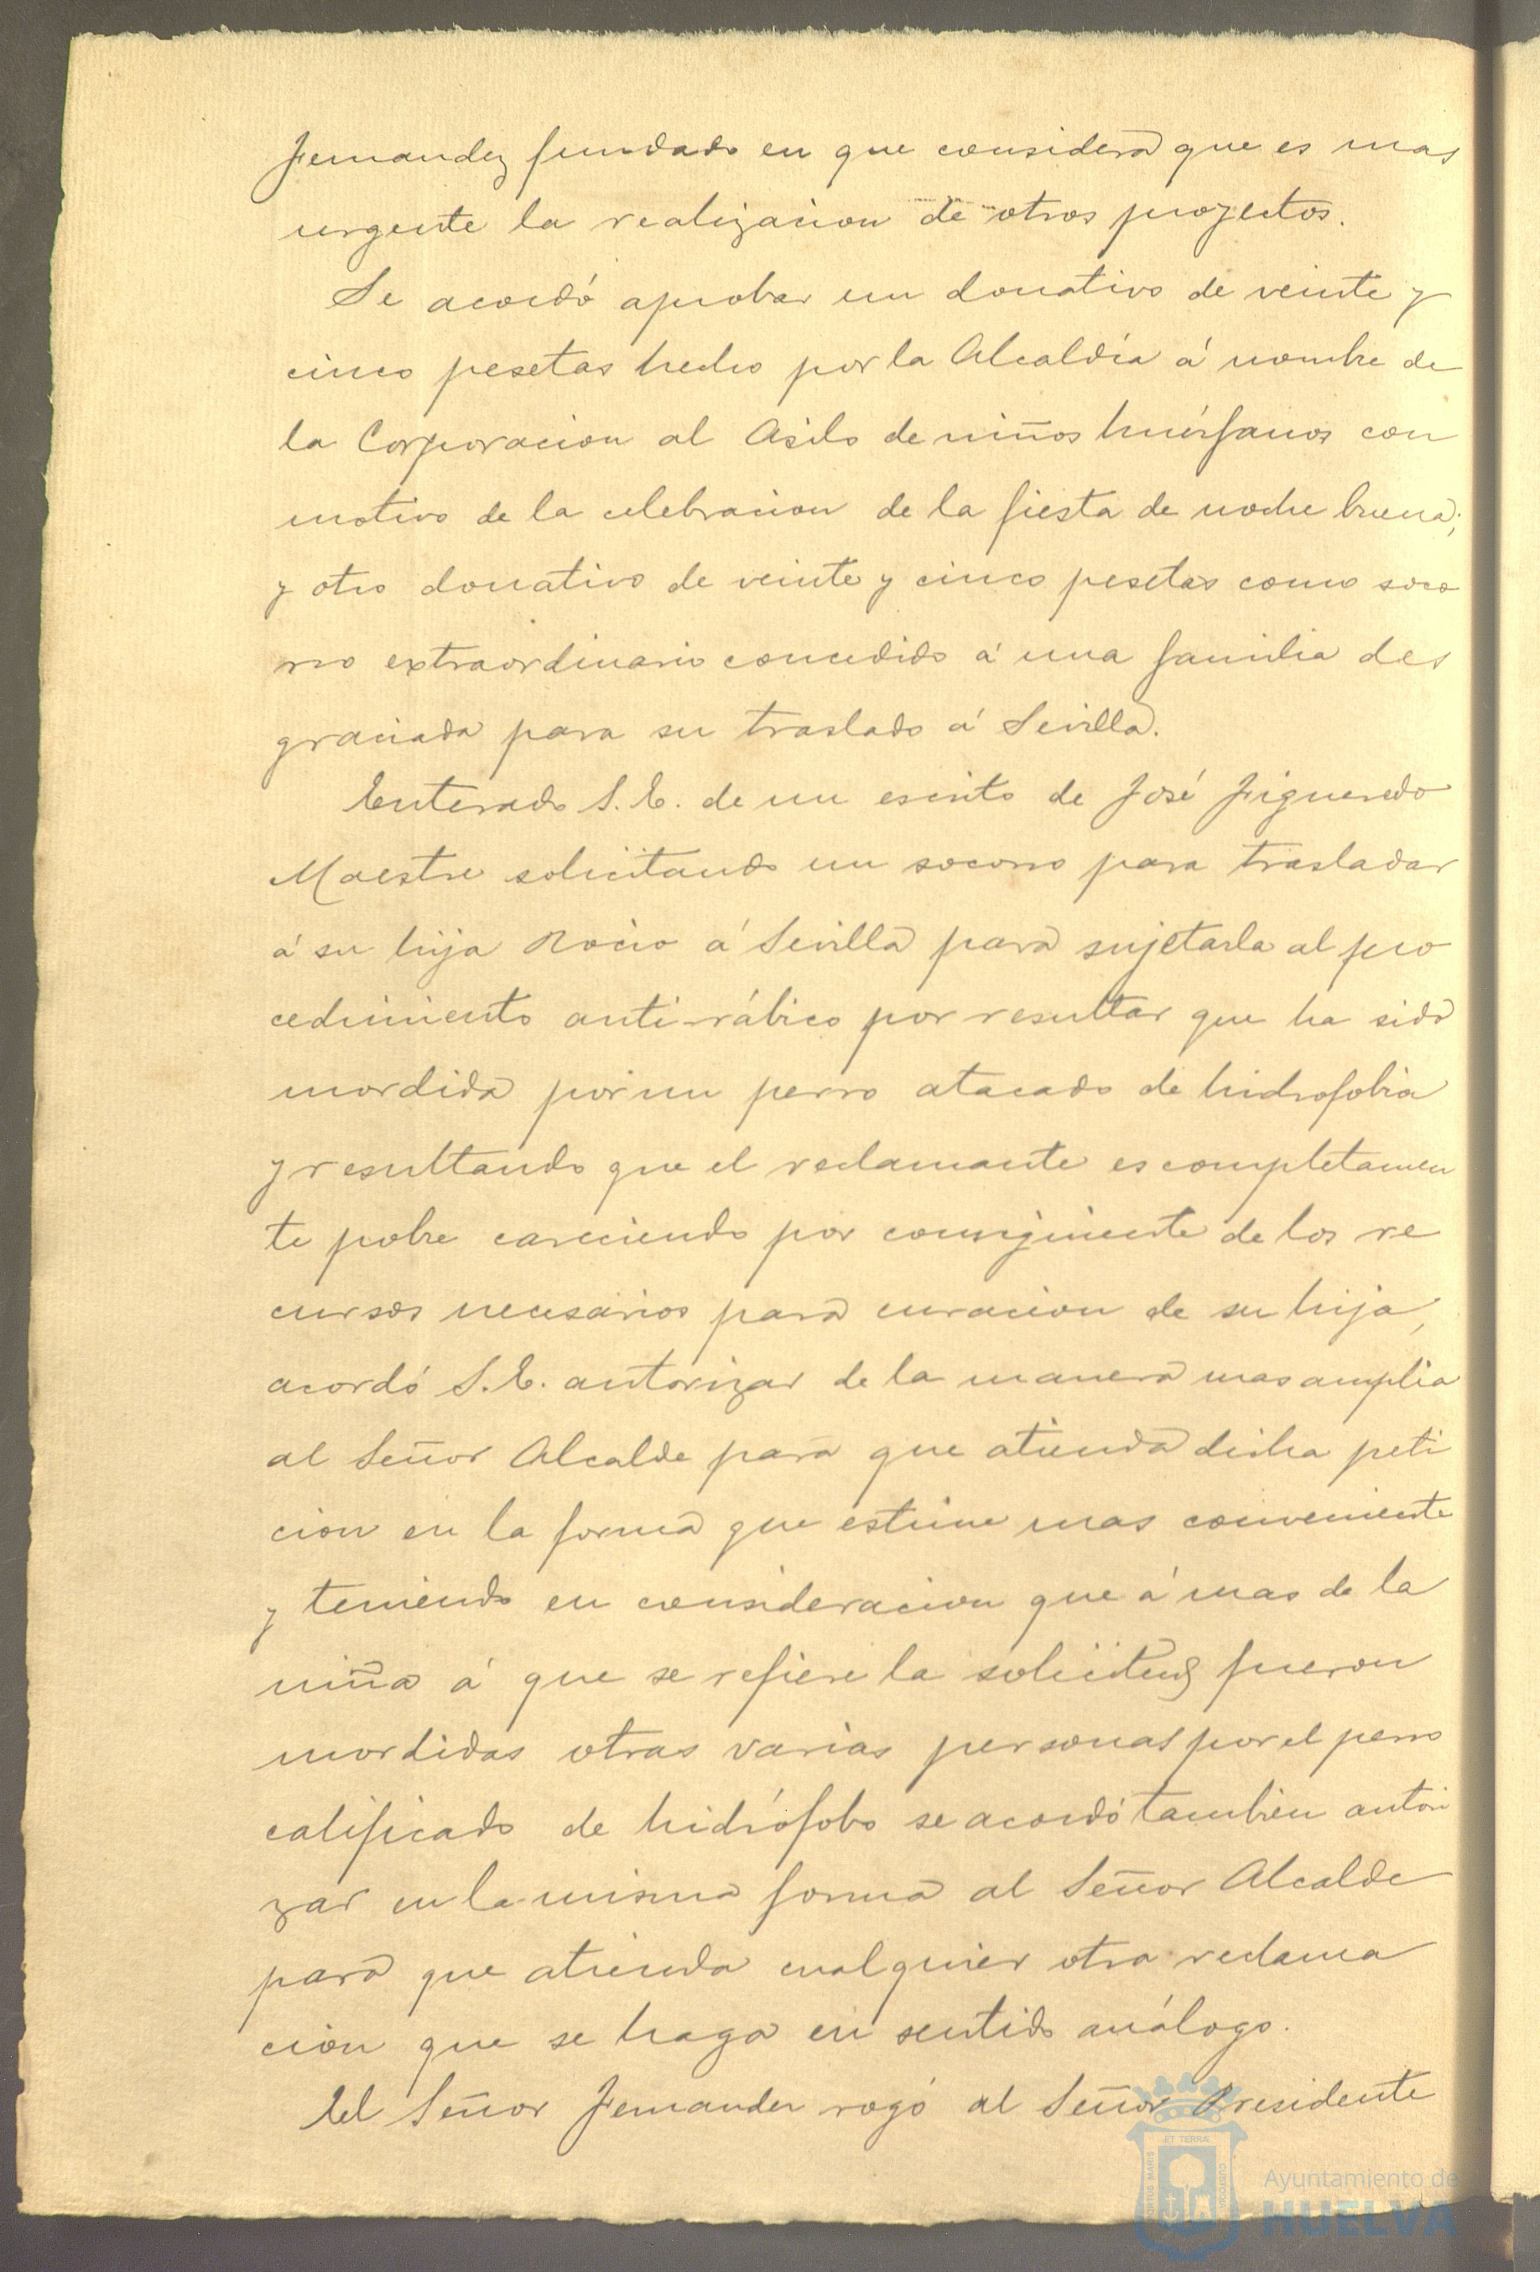 Fernandez fundado en que considera que es mas
urgente la realizacion de otros proyectos.
Se acordó aprobar un donativo de veinte y
cinco pesetas hecho por la Alcaldía á nombre de
la Corporacion al Asilo de niños huérfanos con
motivo de la celebracion de la fiesta de noche buena;
y otro donativo de veinte y cinco pesetas como soco
rro extraordinario concedido á una familia des
graciada para su traslado á Sevilla.
Enterado S.E. de un escrito de José Figueredo
Maestre solicitando un socorro para trasladar
á su hija Rocio á Sevilla para sujetarla al pro
cedimiento anti-rábico por resultar que ha sido
mordida por un perro atacado de hidrofobia
y resultando que el reclamante es completamen
te pobre careciendo por consiguiente de los re
cursos necesarios para curacion de su hija,
acordó S.E. autorizar de la manera mas amplia
al Señor Alcalde para que atienda dicha peti
cion en la forma que estime mas conveniente
y teniendo en consideracion que á mas de la
niña á que se refiere la solicitud fueron
mordidas otras varias personas por el perro
calificado de hidrófobo se acordó tambien autori
zar en la misma forma al Señor Alcalde
para que atienda cualquier otra reclama
cion que se haga en sentido análogo.
El Señor Fernandez rogó al Señor Presidente
PORTUS MARIS ET TERRAE CUSTODIA
Ayuntamiento de
HUELVA